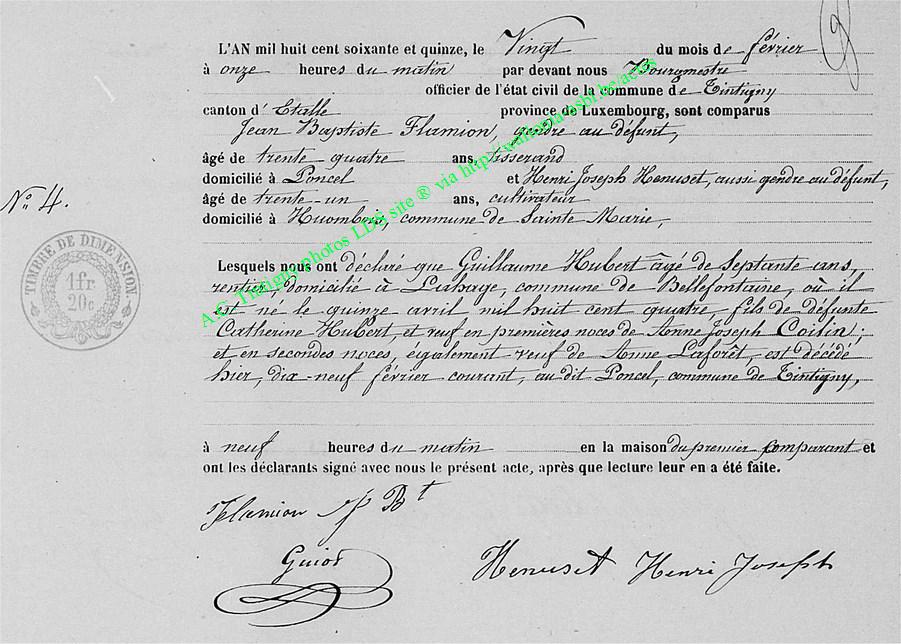 L'AN mil huit cent soixante et quinze, le Vingt du mois de février
à onze heures du matin par devant nous Bourgmestre
officier de l'état civil de la commune de Tintigny
canton d'Etalle province de Luxembourg, sont comparus
Jean Baptiste Flamion, gendre au défunt,
âgé de trente-quatre ans, tisserand
domicilié à Poncel et Henri Joseph Henuset, aussi gendre au défunt,
N° 4.
âgé de trente-un ans, cultivateur
domicilié à Huombois, commune de Sainte Marie,
TIMBRE DE DIMENSION
1fr
20c
Lesquels nous ont déclaré que Guillaume Hubert âgé de septante ans,
rentier, domicilié à Lahage, commune de Bellefontaine, où il
est né le quinze avril mil huit cent quatre, fils de défunte
Catherine Hubert, et veuf en premières noces de Anne Joseph Coilin;
et en secondes noces, également veuf de Anne Laforêt, est décédé
hier, dix-neuf février courant, au dit Poncel, commune de Tintigny,
à neuf heures du matin en la maison du premier comparant et
ont les déclarants signé avec nous le présent acte, après que lecture leur en a été faite.
Flamion J Bt
Guiot
Henuset Henri Joseph
A.G. Tintigny photos LDS site ® via http://